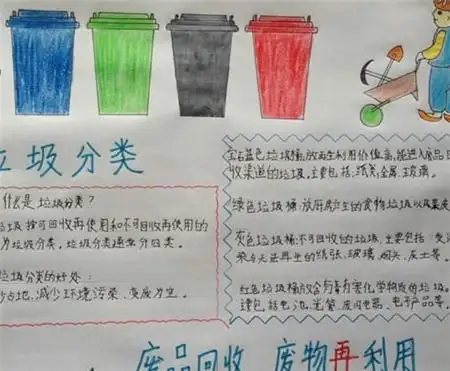 垃圾分类
什么是垃圾分类？
垃圾按可回收再使用和不可回收再使用的
为垃圾分类。垃圾分类通常分四类。
垃圾分类的好处：
少占地、减少环境污染、变废为宝。
宝石蓝色垃圾桶：放再生利用价值高，能进入废品回
收渠道的垃圾，主要包括：纸类、金属、玻璃。
绿色垃圾桶：放厨房产生的食物垃圾以及
灰色垃圾桶：不可回收的垃圾，主要包括：受污
染与无法再生的纸张、玻璃、烟头、灰土等。
红色垃圾桶放含有毒有害化学物质的垃圾。
主要包括电池、光管、废旧电器、电子产品等。
废品回收 废物再利用